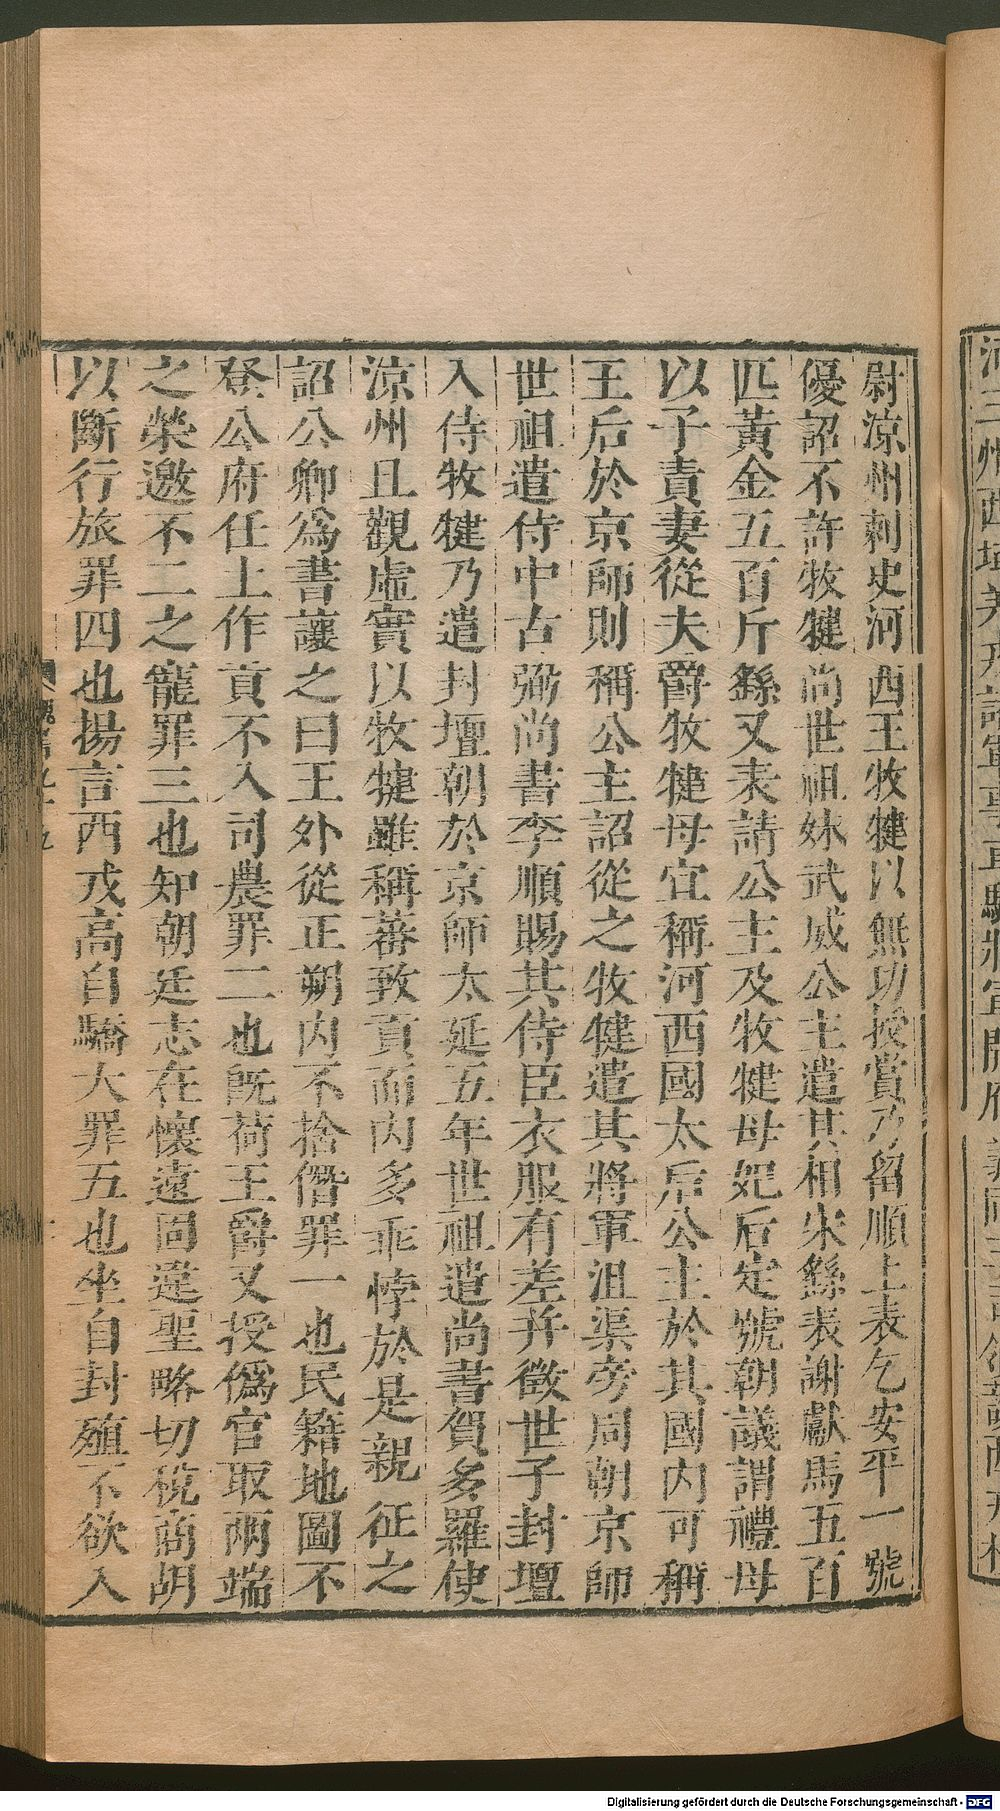 尉涼州刺史河西王牧犍以無功授賞乃留順上表乞安平一號
優詔不許牧犍尚世祖妹武威公主遣其相宋繇表謝獻馬五百
匹黃金五百斤繇又表請公主及牧犍母妃后定號朝議謂禮母
以子貴妻從夫爵牧犍母宜稱河西國太后公主於其國內可稱
王后於京師則稱公主詔從之牧犍遣其將軍沮渠旁周朝京師
世祖遣侍中古弼尚書李順賜其侍臣衣服有差并徵世子封壇
入侍牧犍乃遣封壇朝於京師太延五年世祖遣尚書賀多羅使
涼州且觀虛實以牧犍雖稱蕃致貢而內多乖悖於是親征之
詔公卿爲書讓之曰王外從正朔內不捨僭罪一也民籍地圖不
登公府任土作貢不入司農罪二也旣荷王爵又授僞官取兩端
之榮邀不二之寵罪三也知朝廷志在懷遠固違聖略切稅商胡
以斷行旅罪四也揚言西戎高自驕大罪五也坐自封殖不欲入
Digitalisierung gefördert durch die Deutsche Forschungsgemeinschaft - DFG